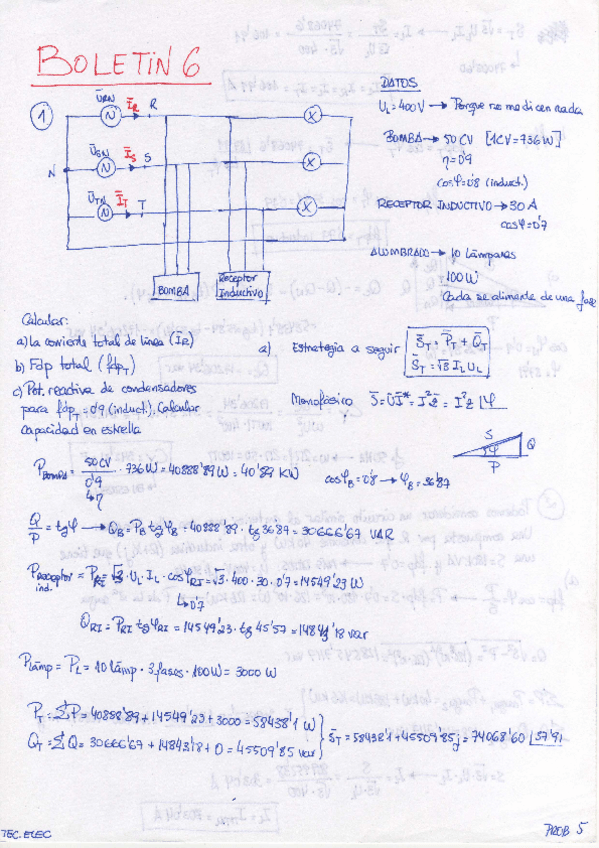 BOLETIN 6
1
U̅RN
I̅R
R
N
U̅SN
I̅S
S
N
N
U̅TN
I̅T
T
N
X
X
X
BOMBA
Receptor
Inductivo
DATOS
UL = 400V → Porque no me dicen nada
BOMBA → 50 CV [1CV = 736W]
η = 0'9
cosφ = 0'8 (induct.)
RECEPTOR INDUCTIVO → 30 A
cosφ = 0'7
ALUMBRADO → 10 Lámparas
100W
Cada se alimente de una fase
Calcular:
a) La corriente total de línea (IR)
b) Fdp total (fdpT)
c) Pot. reactiva de condensadores
para fdpT = 0'9 (induct.). Calcular
capacidad en estrella
a) Estrategia a seguir
S̅T = P̅T + Q̅T
S̅T = √3 IL UL
Monofásico S̅ = U̅I̅* = I²z̅ = I²z |φ
S
φ
Q
P
PBOMBA = 50CV / 0'9 · 736W = 40888'89W = 40'89 KW
↳ η
cosφB = 0'8 → φB = 36'87
Q/P = tgφ → QB = PB tgφB = 40888'89 · tg 36'87 = 30666'67 VAR
PReceptor ind. = PRI = √3 · UL · IL · cosφRI = √3 · 400 · 30 · 0'7 = 14549'23 W
↳ 0'7
QRI = PRI tgφRI = 14549'23 · tg 45'57 = 14843'18 var
Plámp = PL = 10 lámp · 3 fases · 100W = 3000 W
PT = ΣP = 40888'89 + 14549'23 + 3000 = 58438'1 W
QT = ΣQ = 30666'67 + 14843'18 + 0 = 45509'85 var
S̅T = 58438'1 + 45509'85j = 74068'60 |37'91
TEC. ELEC
PROB 5